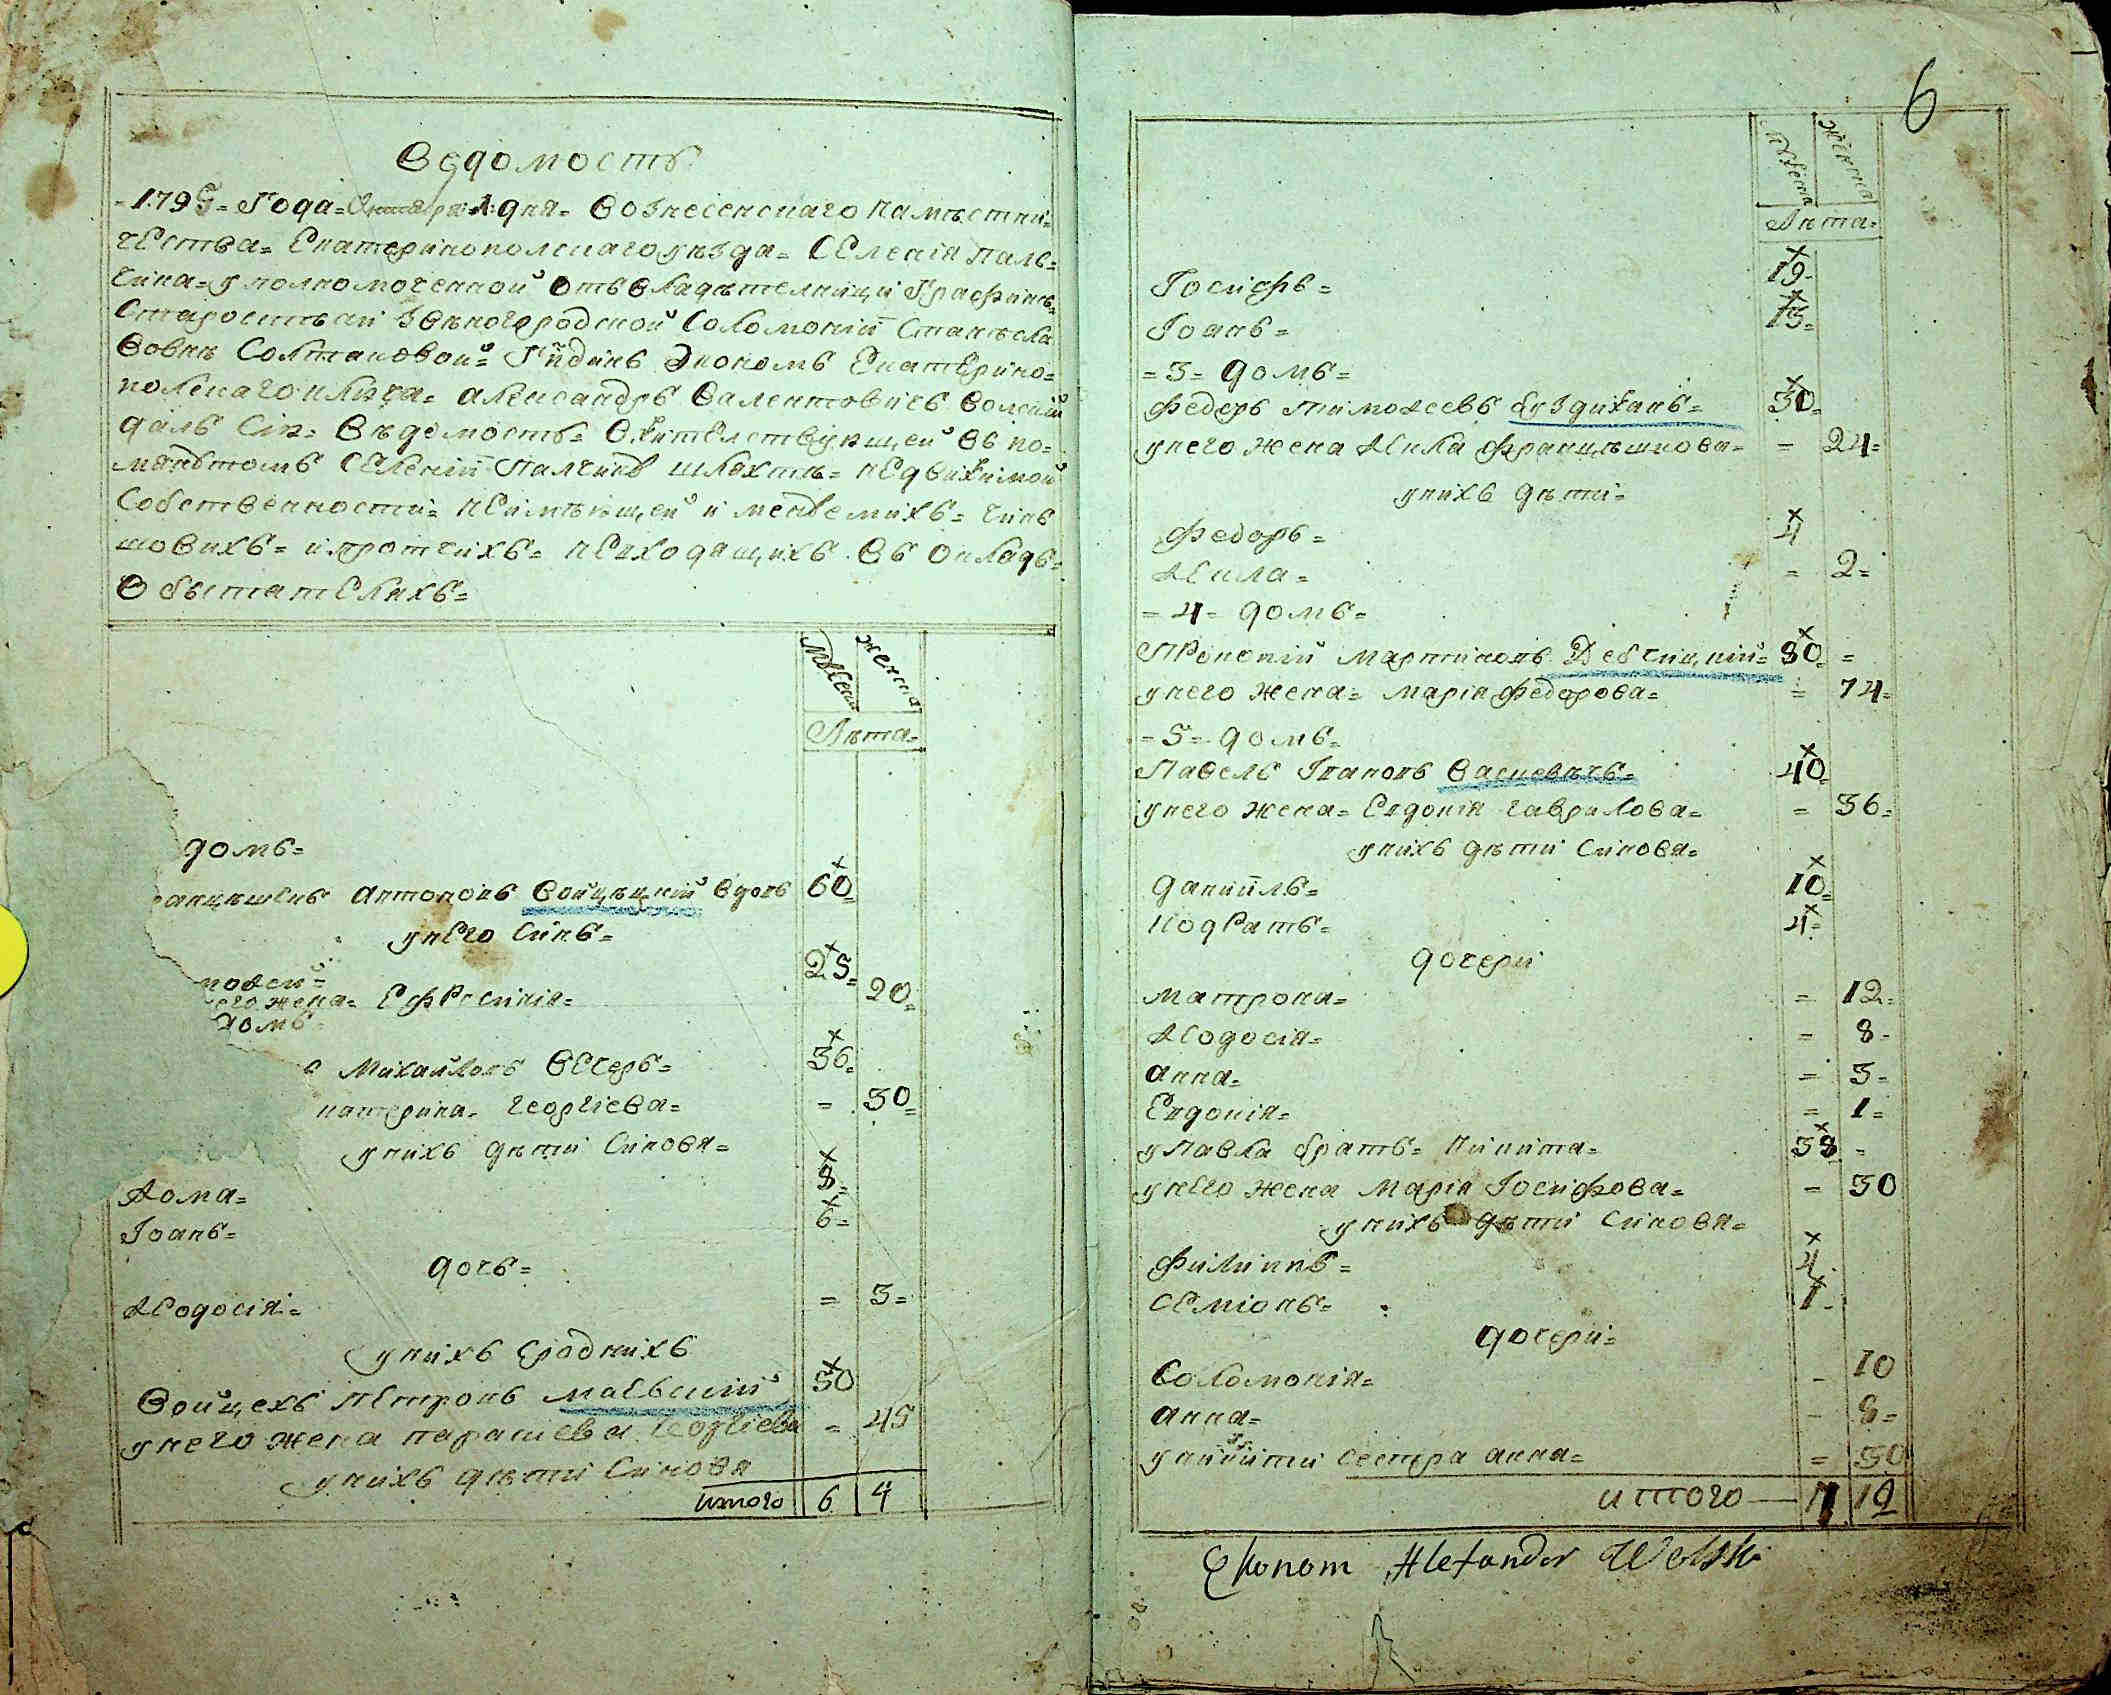 Ведомость
1795 = Года = Октября 1 дня = Вознесенскаго Намѣстни=
чества = Екатеринополскаго уѣзда = Селенія Паль=
чика = уполномоченной отъ владѣтелници Графинѣ
Старостѣній Звѣногородской Соломоніи Станѣсла
вовнѣ Солтиковой = Экономъ Екатерино=
полскаго ключа = Александръ Валентовичъ Волскій
далъ сію = Вѣдомость = О жителствующей въ по=
мянѣтомъ селеніи Палчикѣ шляхтѣ = недвижимой
собственности = неимѣющей и межъ емихъ = чин
шовихъ = и протчихъ = невходящихъ въ окладъ =
Обыстателяхъ =
мужеска женска
Лѣта =
домъ =
ранцѣшекъ Антоновъ Войцѣцкій вдовъ 60 =
у него синъ =
25 =
его жена = Ефросинія = 20 =
домъ =
Михайловъ Вечеръ = 36 =
катерина = Георгіева = = 30 =
у нихъ дѣти синовя =
Ѳома = 8 =
Іоанъ = 6 =
дочъ =
Ѳеодосія = = 3 =
у нихъ сродникъ
Войцехъ Петровъ 50
у него жена Параскева Георгіева = 45
у нихъ дѣти синовя
итого 6 4
6
мужеска женска
Лѣта =
Іосифъ = 19 =
Іоанъ = 13 =
= 3 = домъ =
Федоръ Тимоѳеевъ Буздиханъ = 30 =
у него жена Ѳекла Францѣшкова = = 24 =
у нихъ дѣти =
Федоръ = 4
Ѳекла = = 2 =
= 4 = домъ =
Прокопій Мартиновъ Девчицкій = 80 = =
у него жена = Марія Федорова = = 74 =
= 5 = домъ =
Павелъ Ивановъ Васкевѣчъ = 40 =
у него жена = Евдокія Гаврилова = = 36 =
у нихъ дѣти синовя =
Даніилъ = 10 =
Кодратъ = 4 =
дочери
Матрона = = 12 =
Ѳеодосія = = 8 =
Анна = = 3 =
Евдокія = = 1 =
у Павла братъ = Никита = 38 =
у него жена Марія Іосифова = = 30
у нихъ дѣти синовя =
Филиппъ = 4 =
Семіонъ = 1 =
дочери =
Соломонія = = 10
Анна = = 8 =
у Никити сестра Анна = = 30
итого — 11 12
Ekonom Alexander Wolski